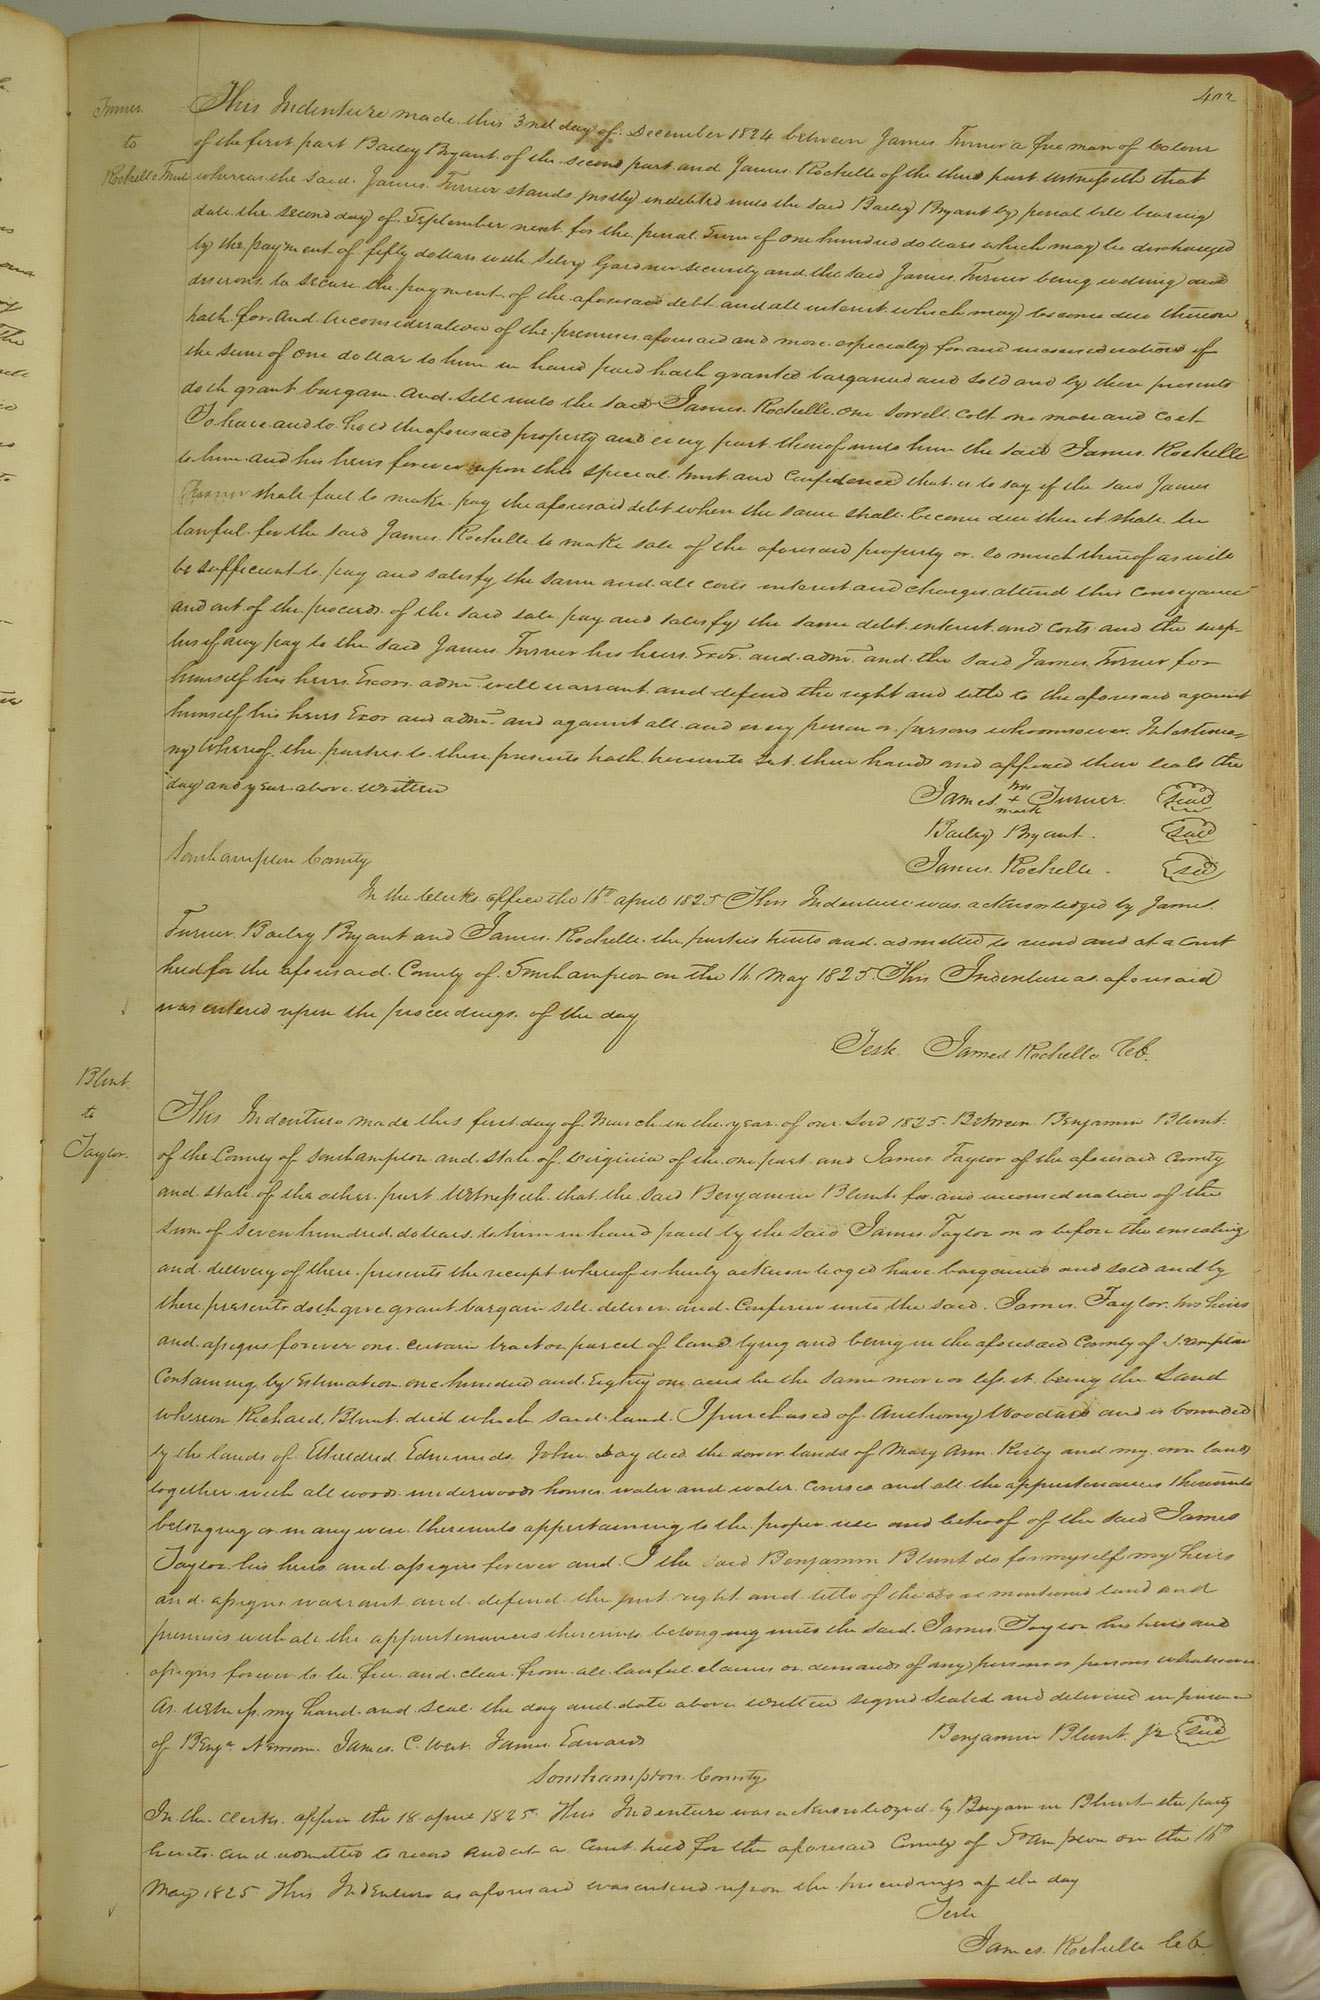 402
Turner
to
Rochelle Trust
This Indenture made this 3nd day of December 1824 between James Turner a free man of Colour
of the first part Bailey Bryant of the second part and James Rochelle of the third part Witnesseth that
whereas the said James Turner stands justly indebted unto the said Bailey Bryant by penal bill bearing
date the second day of September next for the penal sum of one hundred dollars which may be discharged
by the payment of fifty dollars with Silvy Gardner security and the said James Turner being willing and
desirous to secure the payment of the aforesaid debt and all interest which may become due thereon
hath for and in consideration of the premises aforesaid and more especially for and in consideration of
the sum of one dollar to him in hand paid hath granted bargained and sold and by these presents
doth grant bargain and sell unto the said James Rochelle one Sorrell Colt one mare and Colt
To have and to hold the aforesaid property and every part thereof unto him the said James Rochelle
to him and his heirs forever upon this special trust and Confidence that is to say if the said James
Turner shall fail to make pay the aforesaid debt when the same shall become due then it shall be
lawful for the said James Rochelle to make sale of the aforesaid property or so much thereof as will
be sufficient to pay and satisfy the same and all costs interest and charges attend this Conveyance
and out of the proceeds of the said sale pay and satisfy the same debt interest and costs and the surp-
lus if any pay to the said James Turner his heirs Exor. and admr. and the said James Turner for
himself his heirs Exors. admr. will warrant and defend the right and title to the aforesaid against
himself his heirs Exor and admr. and against all and every person or persons whomsoever In testimo=
ny Whereof the parties to these presents hath hereunto set their hands and affixed their seals the
day and year above written
James his + mark Turner seal
Bailey Bryant. seal
James Rochelle. seal
Southampton County
In the Clerks office the 16th april 1825 This Indenture was acknowledged by James
Turner Bailey Bryant and James Rochelle the parties hereto and admitted to record and at a Court
held for the aforesaid County of Southampton on the 16 May 1825 This Indenture as aforesaid
was entered upon the proceedings of the day
Teste James Rochelle CC.
Blunt
to
Taylor
This Indenture made this first day of March in the year of our Lord 1825 Between Benjamin Blunt
of the County of Southampton and state of Virginia of the one part and James Taylor of the aforesaid County
and state of the other part Witnesseth that the said Benjamin Blunt for and in consideration of the
sum of seven hundred dollars to him in hand paid by the said James Taylor on or before the ensealing
and delivery of these presents the receipt whereof is hereby acknowledged have bargained and sold and by
these presents doth give grant bargain sell deliver and Confirm unto the said James Taylor his heirs
and assigns forever one certain tract or parcel of land lying and being in the aforesaid County of S.ampton
Containing by Estimation one hundred and Eighty one acres be the same more or less it being the Land
whereon Richard Blunt died which said land I purchased of Anthony Woodard and is bounded
by the lands of Etheldred Edmunds John Day decd the dower lands of Mary Ann Kirby and my own land
together with all woods underwoods houses water and water courses and all the appurtenances thereunto
belonging or in any wise thereunto appertaining to the proper use and behoof of the said James
Taylor his heirs and assigns forever and I the said Benjamin Blunt do for myself my heirs
and assigns warrant and defend the just right and title of the above mentioned land and
premises with all the appurtenances thereunto belonging unto the said James Taylor his heirs and
assigns forever to be free and clear from all lawful claims or demands of any person or persons whatsoever
As witness my hand and seal the day and date above written signed Sealed and delivered in presence
of Benja. Newsom James C. West James Edwards
Benjamin Blunt Jr seal
Southampton County
In the Clerks office the 18 april 1825 This Indenture was acknowledged by Benjamin Blunt the party
hereto and admitted to record and at a Court held for the aforesaid County of Soampton on the 16th
May 1825 This Indenture as aforesaid was entered upon the proceedings of the day
Teste
James Rochelle CC.